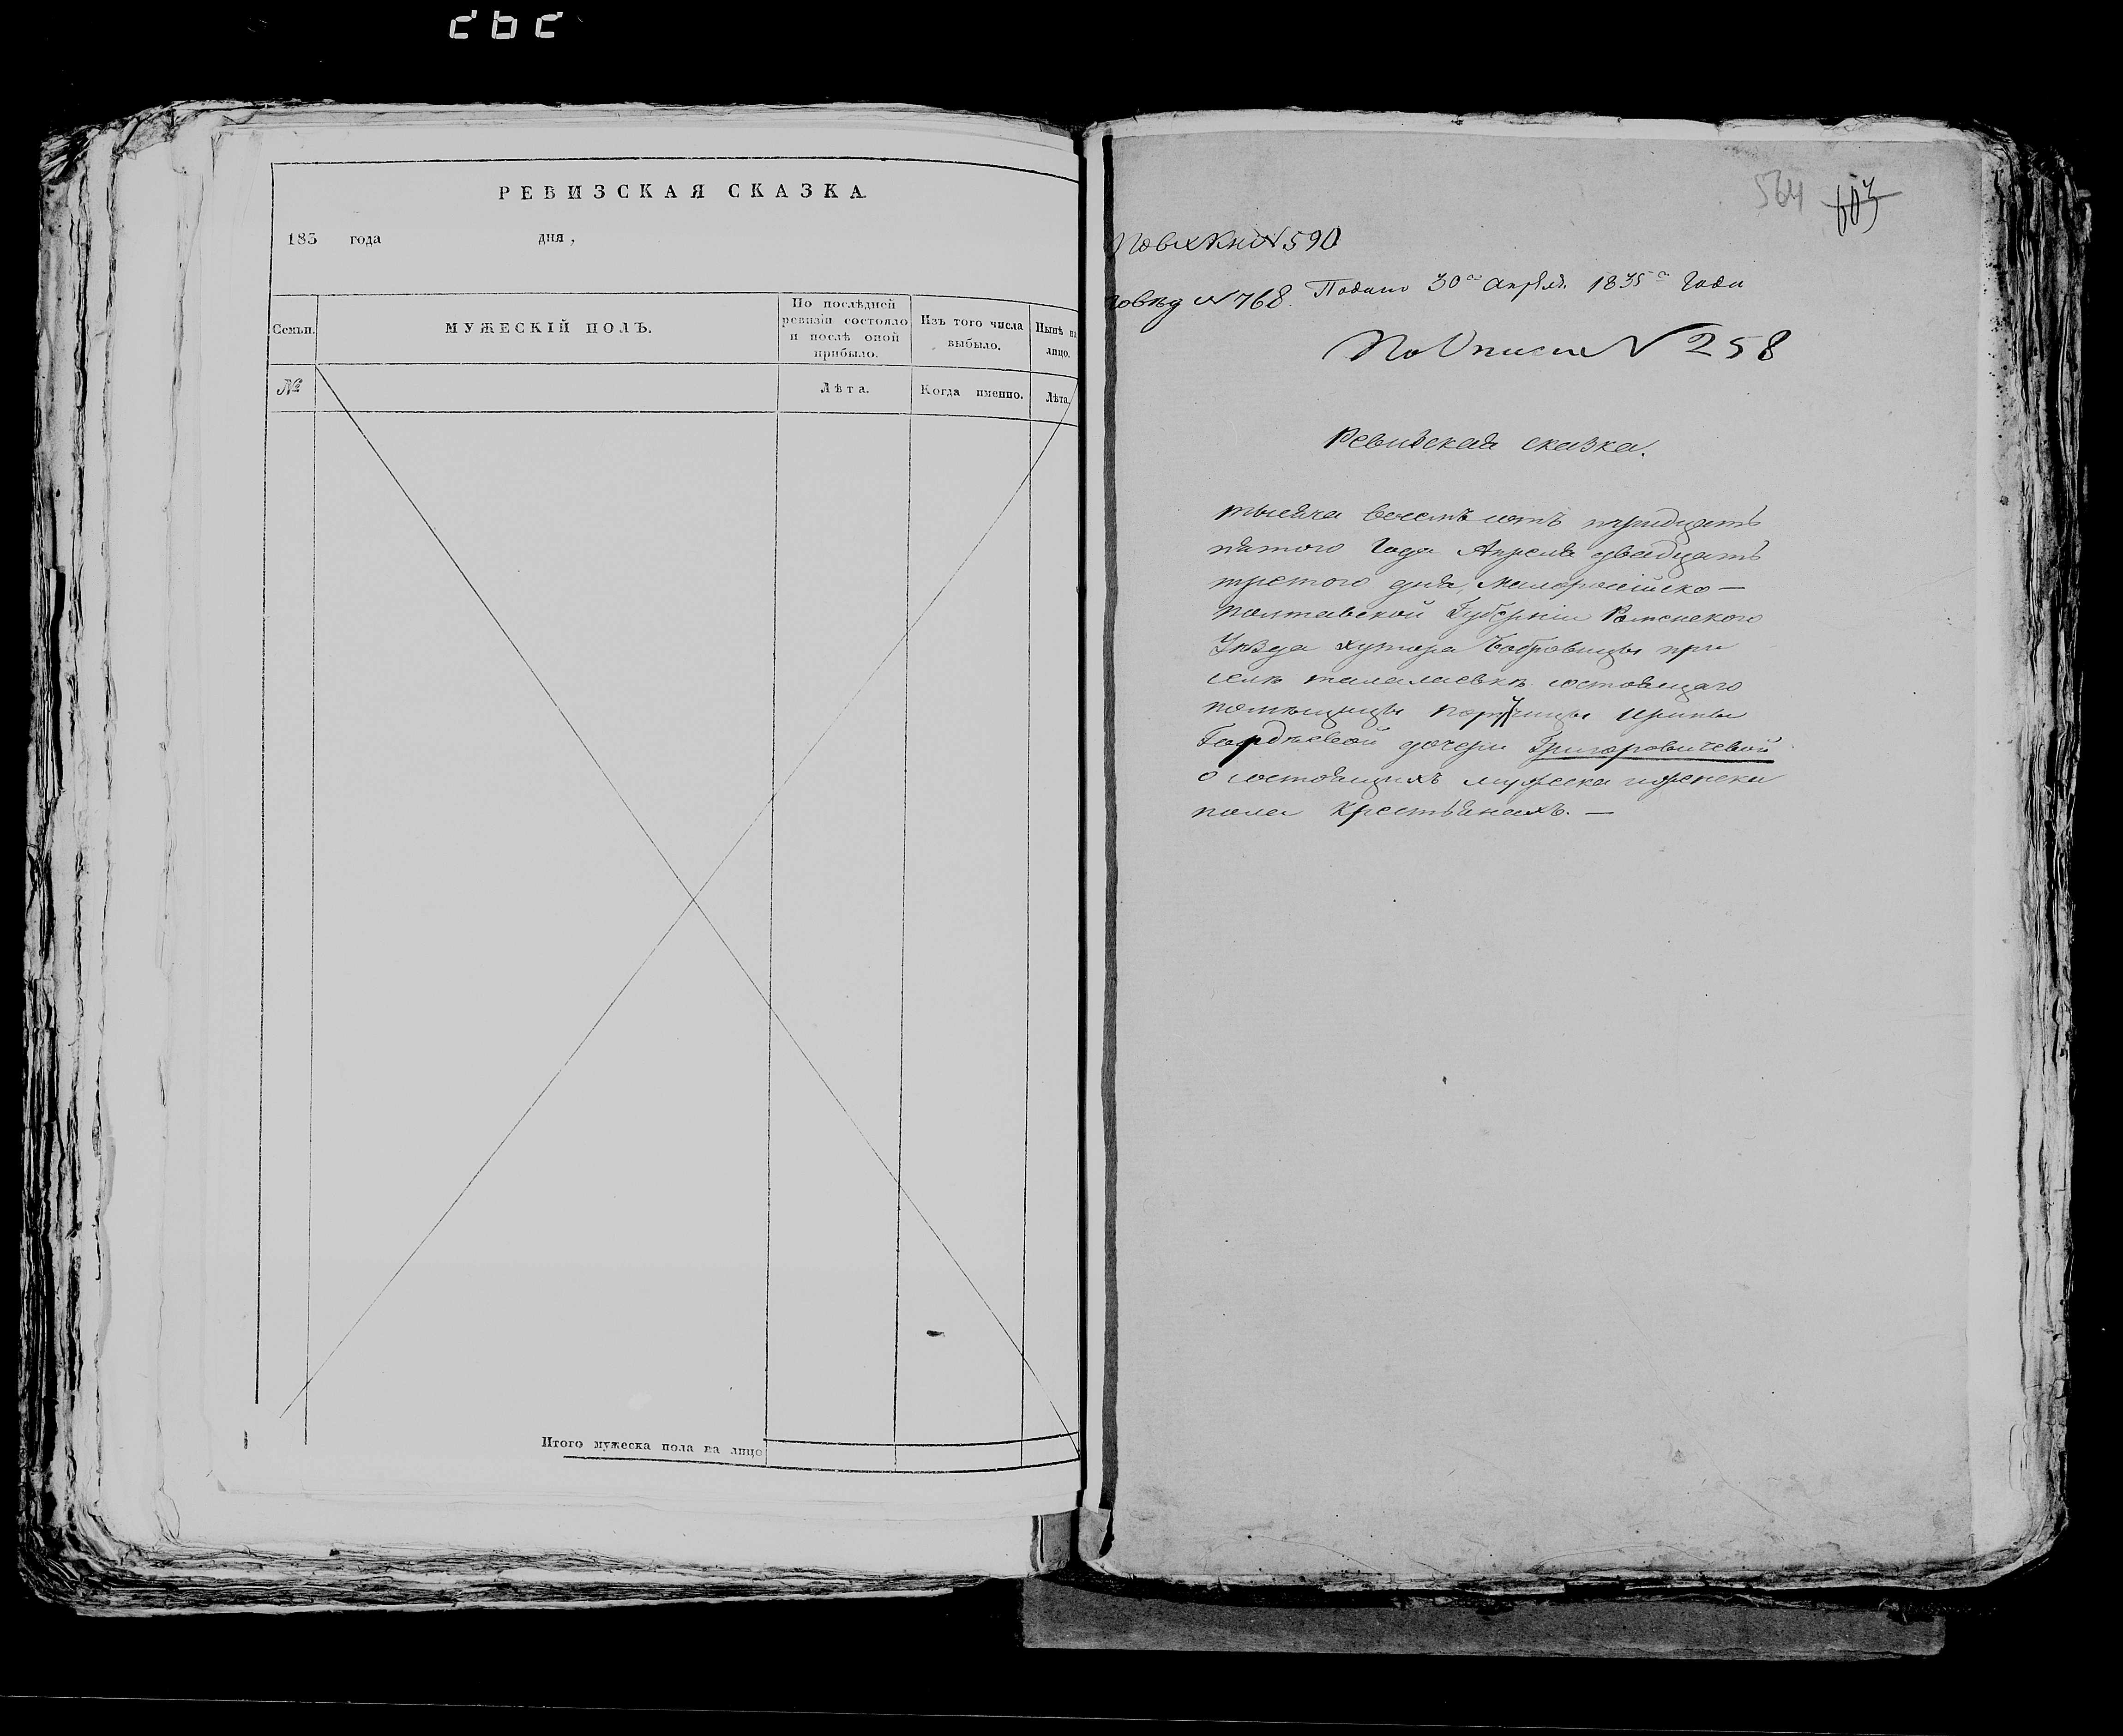 РЕВИЗСКАЯ СКАЗКА
183 года дня,
Семьи.
МУЖЕСКІЙ ПОЛЪ.
По послѣдней
ревизіи состояло
и послѣ оной
прибыло.
Изъ того числа
выбыло.
Нынѣ на
лицо.
№
Лѣта.
Когда именно.
Лѣта.
Итого мужеска пола на лицо
564
По вх Кн № 590
№ 768. Подано 30го Апрѣля 1835го Года
По Описи № 258
Ревизская сказка.
тысяча восемъ сотъ тридцать
пятого Года Апреля двадцать
третого дня, Малоросійско —
Полтавской Губерніи Роменского
Уѣзда хутора Бобровицы при
селѣ талалаевкѣ состоящаго
помѣщицы Поручицы Ирины
Гордѣевой дочери Григоровичевой
о состоящихъ мужеска иженска
пола крестьянахъ. —